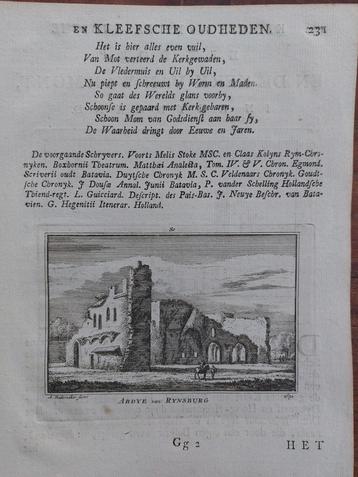 EN KLEEFSCHE OUDHEDEN. 231
Het is hier alles even vuil,
Van Mot verteerd de Kerkgewaden,
De Vledermuis en Uil by Uil,
Nu piept en schreeuwt by Worm en Maden.
So gaat des Werelds glans voorby,
Schoonse is gepaard met Kerkgebaren,
Schoon Mom van Godsdienst aan haar sy,
De Waarheid dringt door Eeuwe en Jaren.
De voorgaande Schryvers. Voorts Melis Stoke MSC. en Claas Kolyns Rym-Chro-
nyken. Boxhornii Theatrum. Matthæi Analecta, Tom. IV. & V. Chron. Egmond.
Scriverii oudt Batavia. Duytsche Chronyk M. S. C. Veldenaars Chronyk. Goudt-
sche Chronyk. J Dousæ Annal. Junii Batavia, P. vander Schelling Hollandsche
Thiend-regt. L. Guicciard. Descript. des Païs-Bas. J. Neuye Beschr. van Bata-
vien. G. Hegenitii Itenerar. Holland.
80
A. Rademaker fecit
ABDYE van RYNSBURG
Gg 2 HET